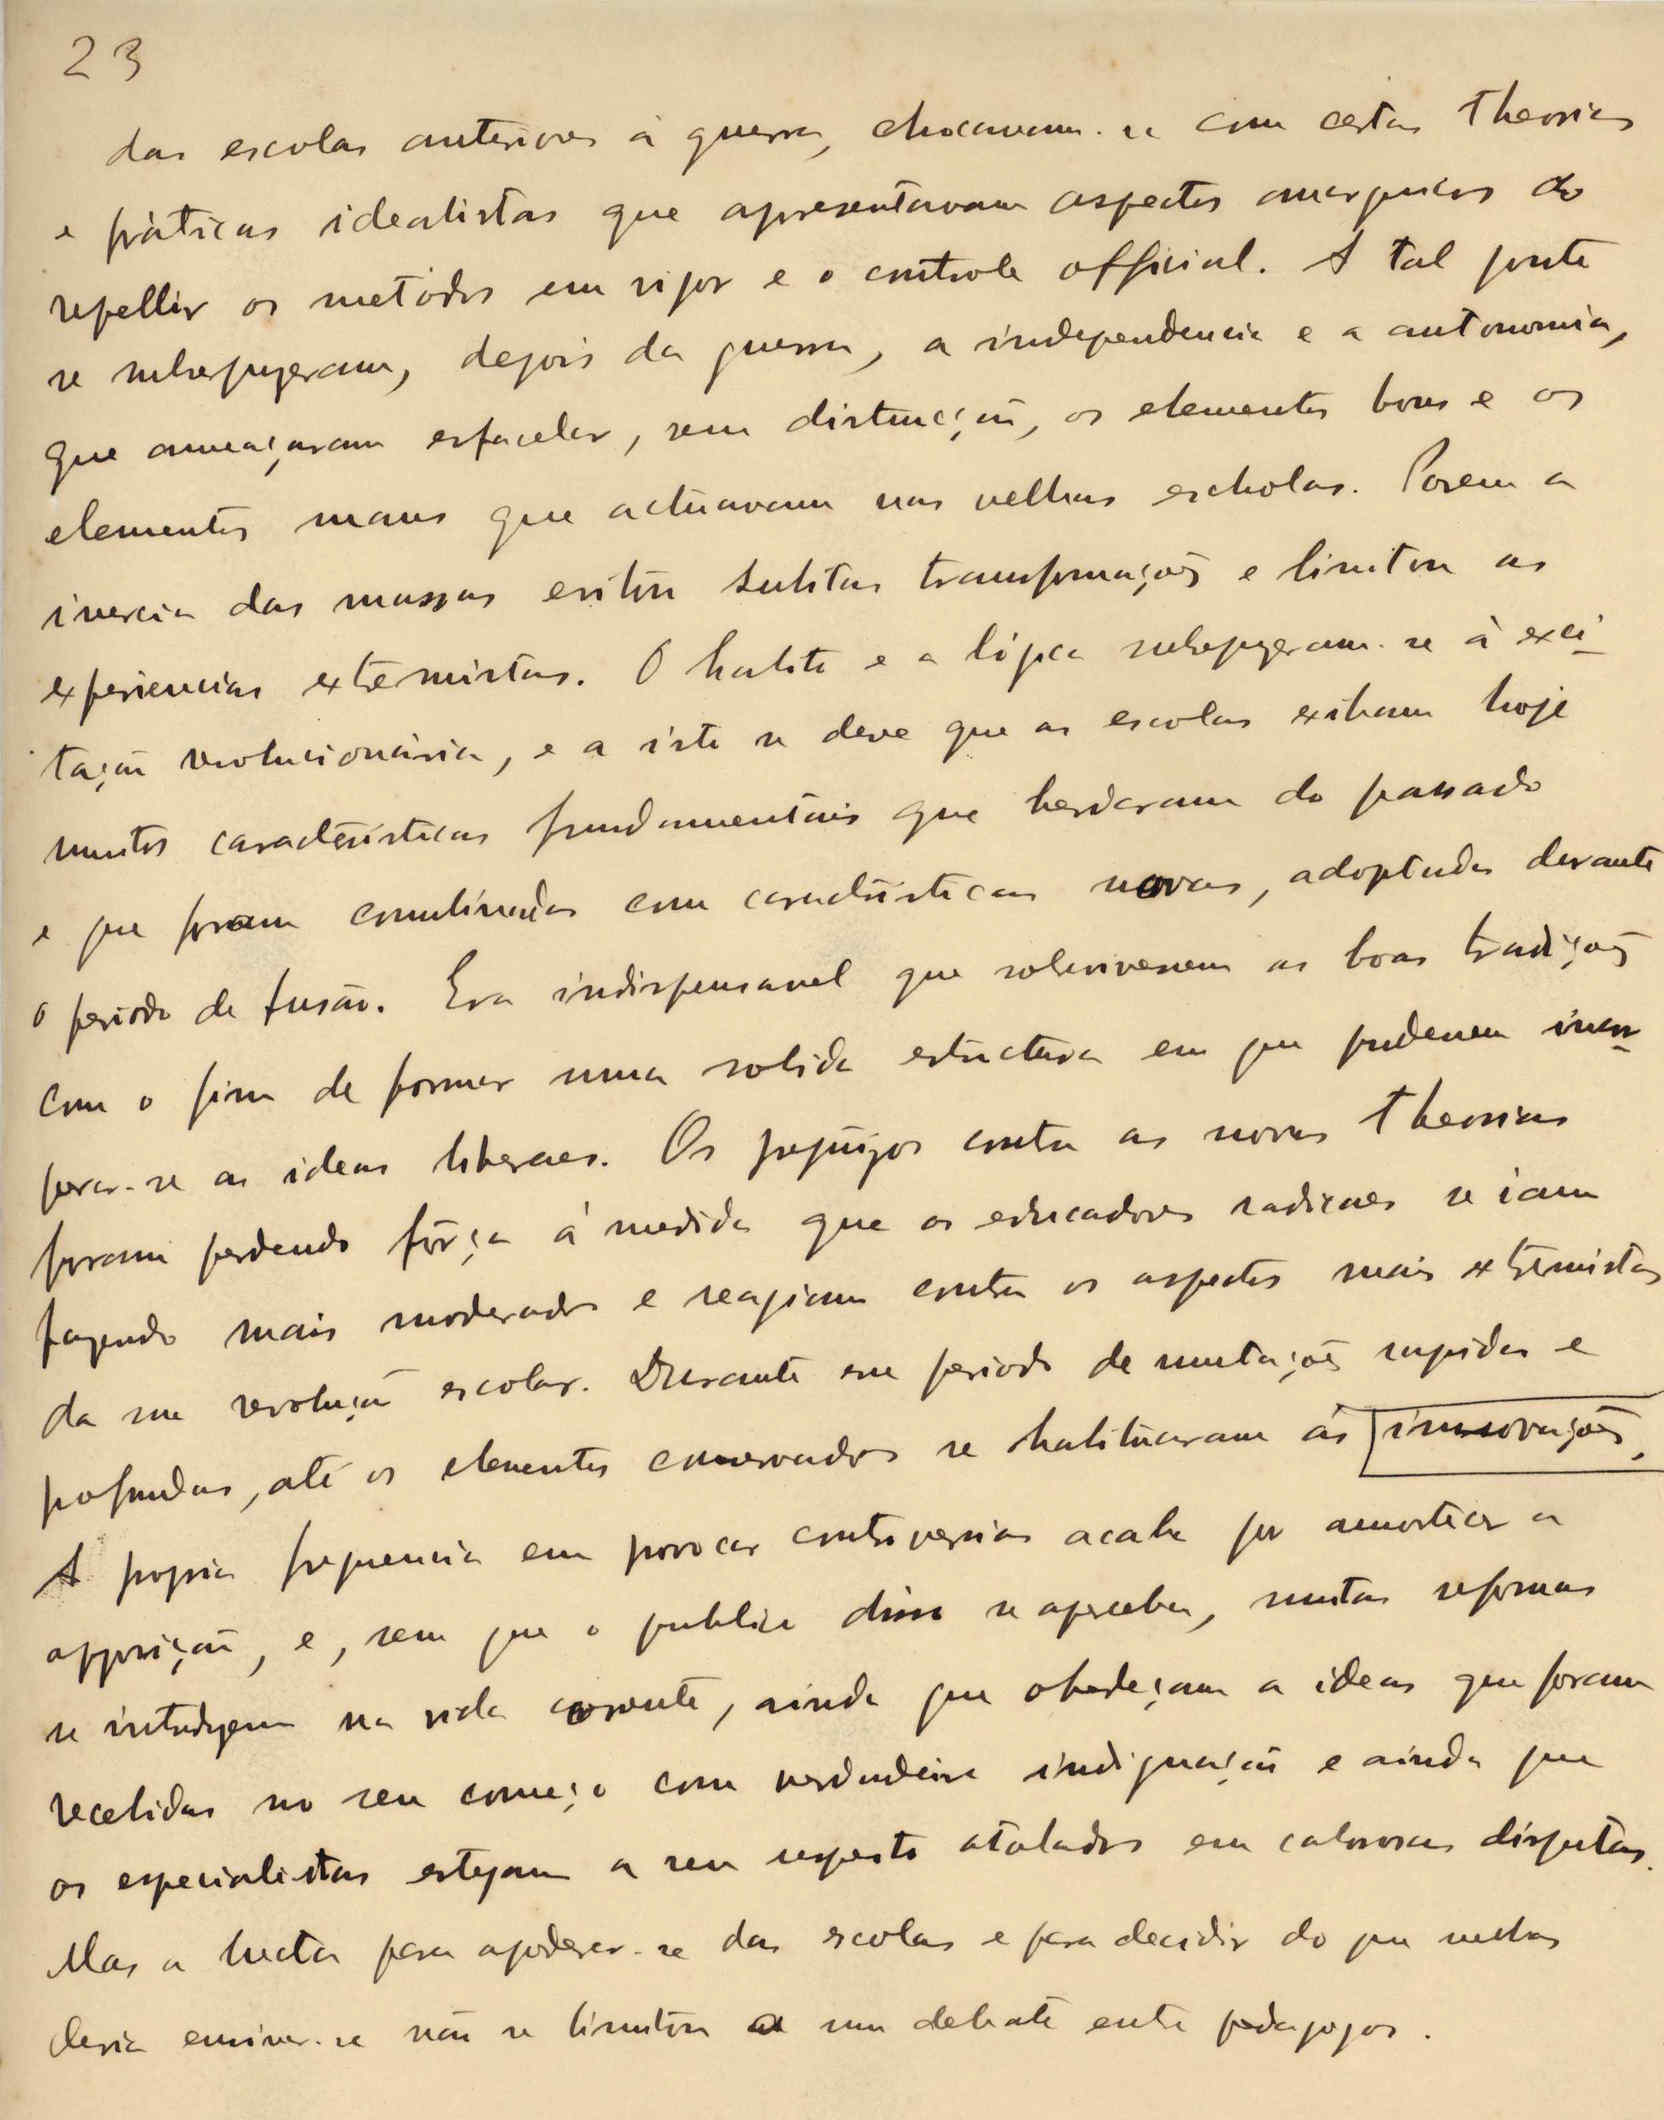 23
das escolas anteriores á guerra, chocavam-se com certas theorias
e práticas idealistas que apresentavam aspectos anarquicos ao
repellir os metódos em vigor e o controle official. A tal ponto
se sobrepuzeram, depois da guerra, a independencia e a autonomia,
que ameaçaram esfacelar, sem distincção, os elementos bons e os
elementos maus que actuavam nas velhas escholas. Porem a
inercia das massas evitou subitas transformações e limitou as
experiencias extremistas. O habito e a lógica sobrepuzeram-se á exci-
tação revolucionária, e a isto se deve que as escolas exibam hoje
muitos caracteristicas fundamentais que herdaram do passado
e que foram combinadas com caracteristicas novas, adoptadas durante
o periodo de fusão. Era indispensavel que sobrevivessem as boas tradições
com o fim de formar uma solida estructura em que pudessem incor-
porar-se as ideas liberaes. Os prejuizos contra as novas theorias
foram perdendo fôrça á medida que os educadores radicaes se iam
fazendo mais moderados e reagiam contra os aspectos mais extremistas
da sua revolução escolar. Durante esse periodo de mutações rapidas e
profundas, até os elementos conservadores se habituaram ás innovações.
A propria frequencia em provocar controversias acaba por amortecer a
opposição, e, sem que o publico disso se aperceba, muitas reformas
se introduzem na vida corrente, ainda que obedeçam a ideas que foram
recebidas no seu começo com verdadeira indignação e ainda que
os especialistas estejam a seu respeito atolados em calorosas disputas.
Mas a lucta para apoderar-se das escolas e para decidir do que nellas
devia ensinar-se não se limitou a um debate entre pedagogos.